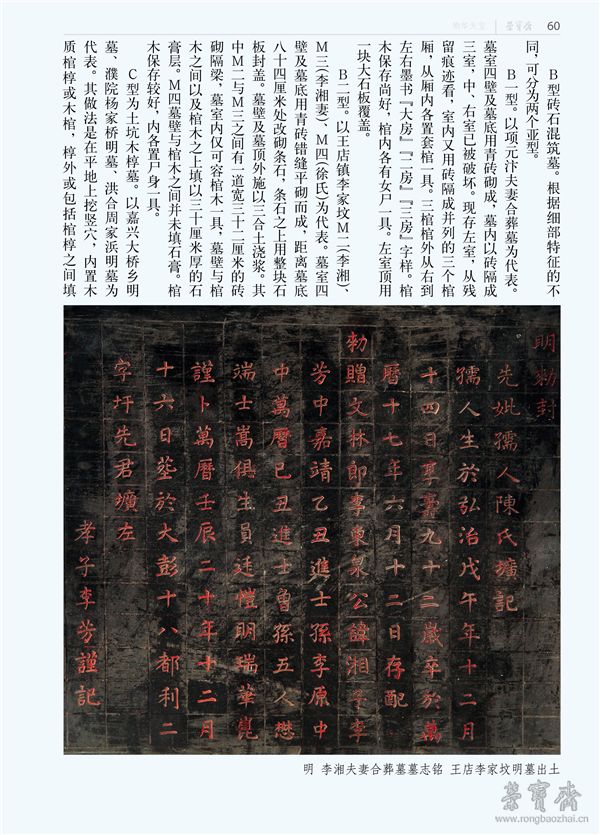 60
荣宝斋
B型砖石混筑墓。根据细部特征的不
同，可分为两个亚型。
B一型。以项元汴夫妻合葬墓为代表。
墓室四壁及墓底用青砖砌成，墓内以砖隔成
三室，中、右室已被破坏。现存左室，从残
留痕迹看，室内又用砖隔成并列的三个棺
厢，从厢内各置套棺一具。三棺棺外从右到
左右墨书『大房』『二房』『三房』字样。棺
木保存尚好，棺内各有女尸一具。左室顶用
一块大石板覆盖。
B二型。以王店镇李家坟M二（李湘）、
M三（李湘妻）、M四（徐氏）为代表。墓室四
壁及墓底用青砖错缝平砌而成，距离墓底
八十四厘米处改砌条石，条石之上用整块石
板封盖。墓壁及墓顶外施以三合土浇浆。其
中M二与M三之间有一道宽三十二厘米的砖
砌隔梁，墓室内仅可容棺木一具，墓壁与棺
木之间以及棺木之上填以三十厘米厚的石
膏层。M四墓壁与棺木之间并未填石膏。棺
木保存较好，内各置尸身一具。
C型为土坑木椁墓。以嘉兴大桥乡明
墓、濮院杨家桥明墓、洪合周家浜明墓为
代表。其做法是在平地上挖竖穴，内置木
质棺椁或木棺，椁外或包括棺椁之间填
明勑封
先妣孺人陳氏壙記
孺人生於弘治戊午年十二月
十四日享壽九十三歲卒於萬
曆十七年六月十二日存配
勑贈文林郎李東泉公諱湘子李
芳中嘉靖乙丑進士孫李原中
中萬曆己丑進士曾孫五人懋
端士嵩俱生員廷愷明瑞華崑
謹卜萬曆壬辰二十年十二月
十六日塟於大彭十八都利二
字圩先君壙左
孝子李芳謹記
明 李湘夫妻合葬墓墓志铭 王店李家坟明墓出土
荣宝斋
www.rongbaozhai.cn